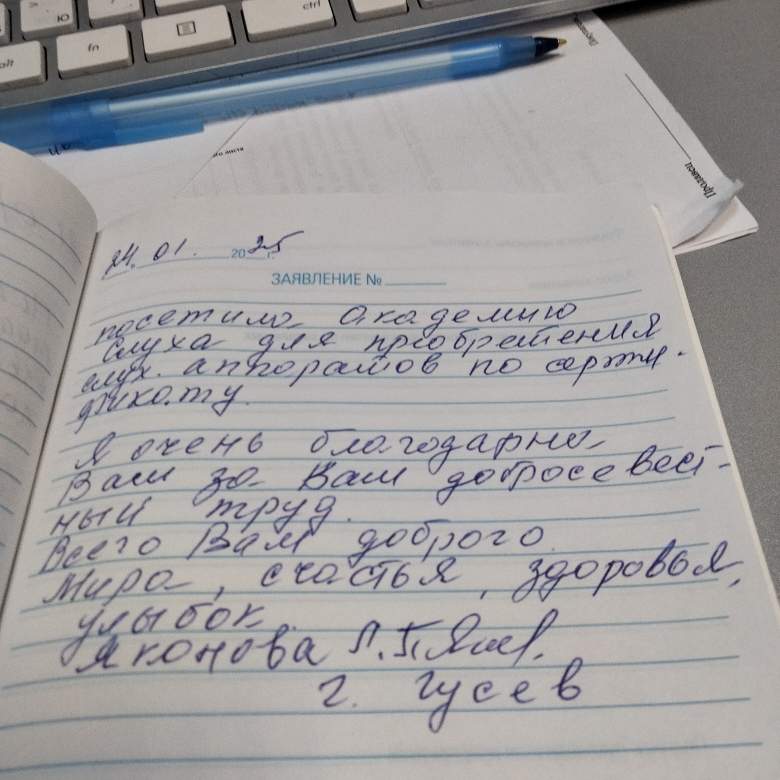 ю
alt
fn
ctrl
Продавец
24. 01. 2025 г.
ЗАЯВЛЕНИЕ №
посетила Академию
слуха для приобретения
слух. аппаратов по серти-
фикату.
Я очень благодарна
Вам за Вам добросевест-
ный труд.
Всего Вам доброго.
Мира, счастья, здоровья,
улыбок.
Яконова Л. П.
г. Гусев